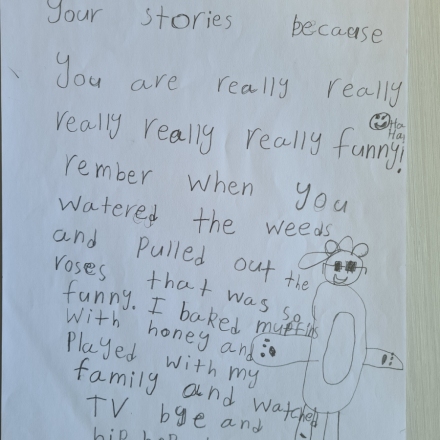 your stories because
You are really really
really really really funny!
Ha
Ha!
rember when you
watered the weeds
and Pulled out the
roses that was so
funny. I baked muffins
with honey and
Played with my
family and watched
TV bye and
hip hop